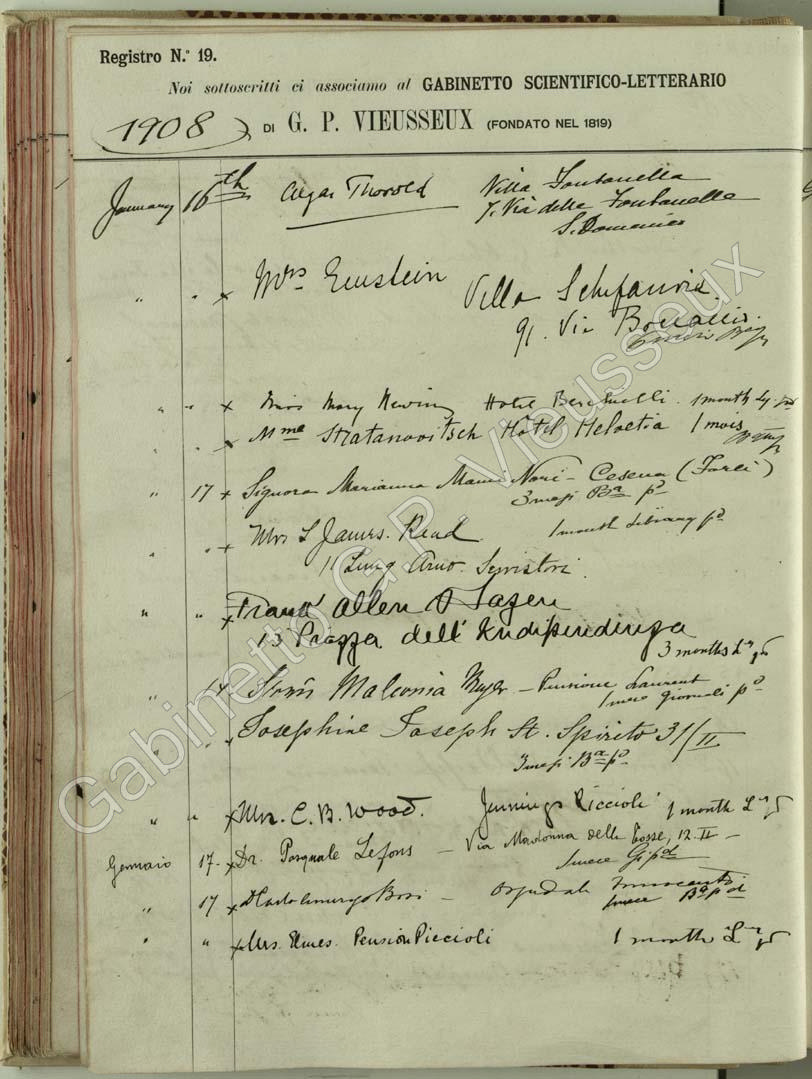 Registro N.° 19.
Noi sottoscritti ci associamo al GABINETTO SCIENTIFICO-LETTERARIO
1908
DI G. P. VIEUSSEUX (FONDATO NEL 1819)
January 16th Algar Thorold Villa Fontanella
7. Via delle Fontanelle
S. Domenico
" " x Mrs Einstein Villa Schifanoia
91. Via Boccaccio.
" " x Miss Mary Hotel 1 month
" x Mme Stratanovitsch Hôtel Helvetia 1 mois
" 17 x Signora Marianna Nori - Cesena (Forlì)
3 mesi Ba pd
" " x Mrs L James. Read 1 month Library pd
11 Lung Arno Serristori
" " x Allen
13 Piazza dell' Indipendenza
3 months
" Malconia - Pensione Laurent
1 mese giornali pd
" Josephine Joseph St. Spirito 31/II
3 mesi Ba pd
" " x Mrs. C. B. Wood. Jennings Riccioli 1 month
Gennaio 17. x Dr. Pasquale Lefons - Via Madonna delle Tosse, 12. II -
1 mese
" 17 x Bosi - Ospedale Innocenti
1 mese Ba pd
" " x Mrs. Elmes. Pension Piccioli 1 month
Gabinetto G.P. Vieusseux